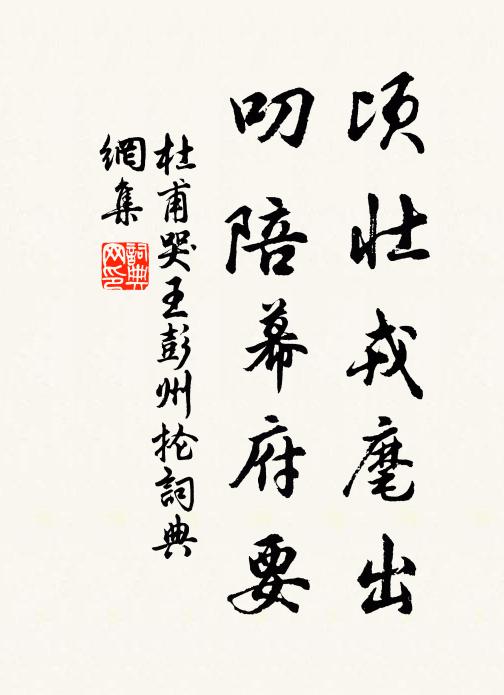 頃壯戎麾出
叨陪幕府要
杜甫哭王彭州掄詞典
網集
詞典网印